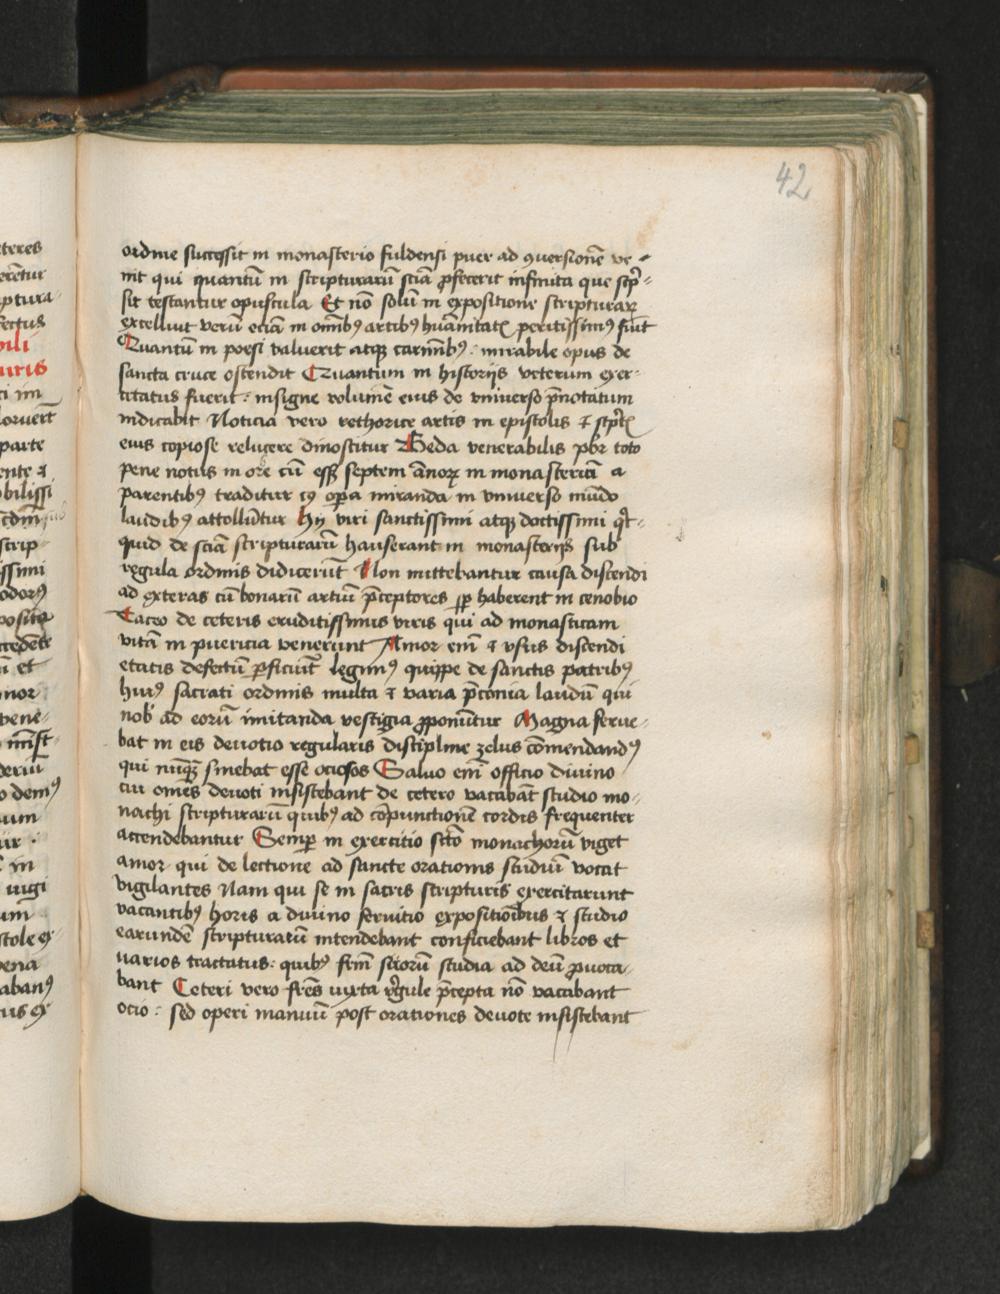 42
ordine successit in monasterio fuldensi puer ad ꝯuersionē ve-
nit qui quantū in scripturarū sciā ꝓfecerit infinita que scp̄-
sit testantur opuscula Et nō solū in expositione scripturaꝝ
excelluit verū eciā in omībꝰ artibꝰ huānitatꝭ peritissimꝰ fuit
Quantū in poesi valuerit atqꝫ carmībꝰ : mirabile opus de
sancta cruce ostendit Quantum in historijs veterum exer-
citatus fuerit : insigne volumē eius de vniuerso p̄notatum
indicabit Noticia vero rethorice artis in epistolis ⁊ scptꝭ
eius copiose relucere dinoscitur Beda venerabilis pbr̄ toto
pene notus in orbe cū esse septem ānoꝝ in monasteriū a
parentibꝰ traditur cꝰ opa miranda in vniuerso mūdo
laudibꝰ attollūtur hij viri sanctissimi atqꝫ doctissimi qͥc-
quid de sciā scripturarū hauserant in monasterijs sub
regula ordinis didicerūt Non mittebantur causa discendi
ad exteras cū bonarū artiū p̄ceptores ꝑ haberent in cenobio
Taceo de ceteris eruditissimis viris qui ad monasticam
vitā in puericia venerunt Amor enī ⁊ vsus discendi
etatis defectū ꝑficiūt legimꝰ quippe de sanctis patribꝰ
huiꝰ sacrati ordinis multa ⁊ varia p̄conia laudū qui
nob ad eorū imitanda vestigia ꝓponūtur Magna ferue-
bat in eis deuotio regularis discipline zelus cōmendandꝰ
qui nūqꝫ sinebat esse ociosos Saluo enī officio diuino
cui omēs deuoti insistebant de cetero vacabāt studio mo-
nachi scripturarū quibꝰ ad cōpunctionē cordis frequenter
accendebantur Semꝑ in exercitio scō monachorū viget
amor qui de lectione ad sancte orationis studiū vocat
vigilantes Nam qui se in sacris scripturis exercitarunt
vacantibꝰ horis a diuino seruitio expositioībus ⁊ studio
earundē scripturarū intendebant conficiebant libros et
uarios tractatus : quibꝰ frm̄ suorū studia ad deū ꝓuoca-
bant Ceteri vero frēs iuxta rͤgule p̄cepta nō vacabant
ocio : sed operi manuū post orationes deuote insistebant